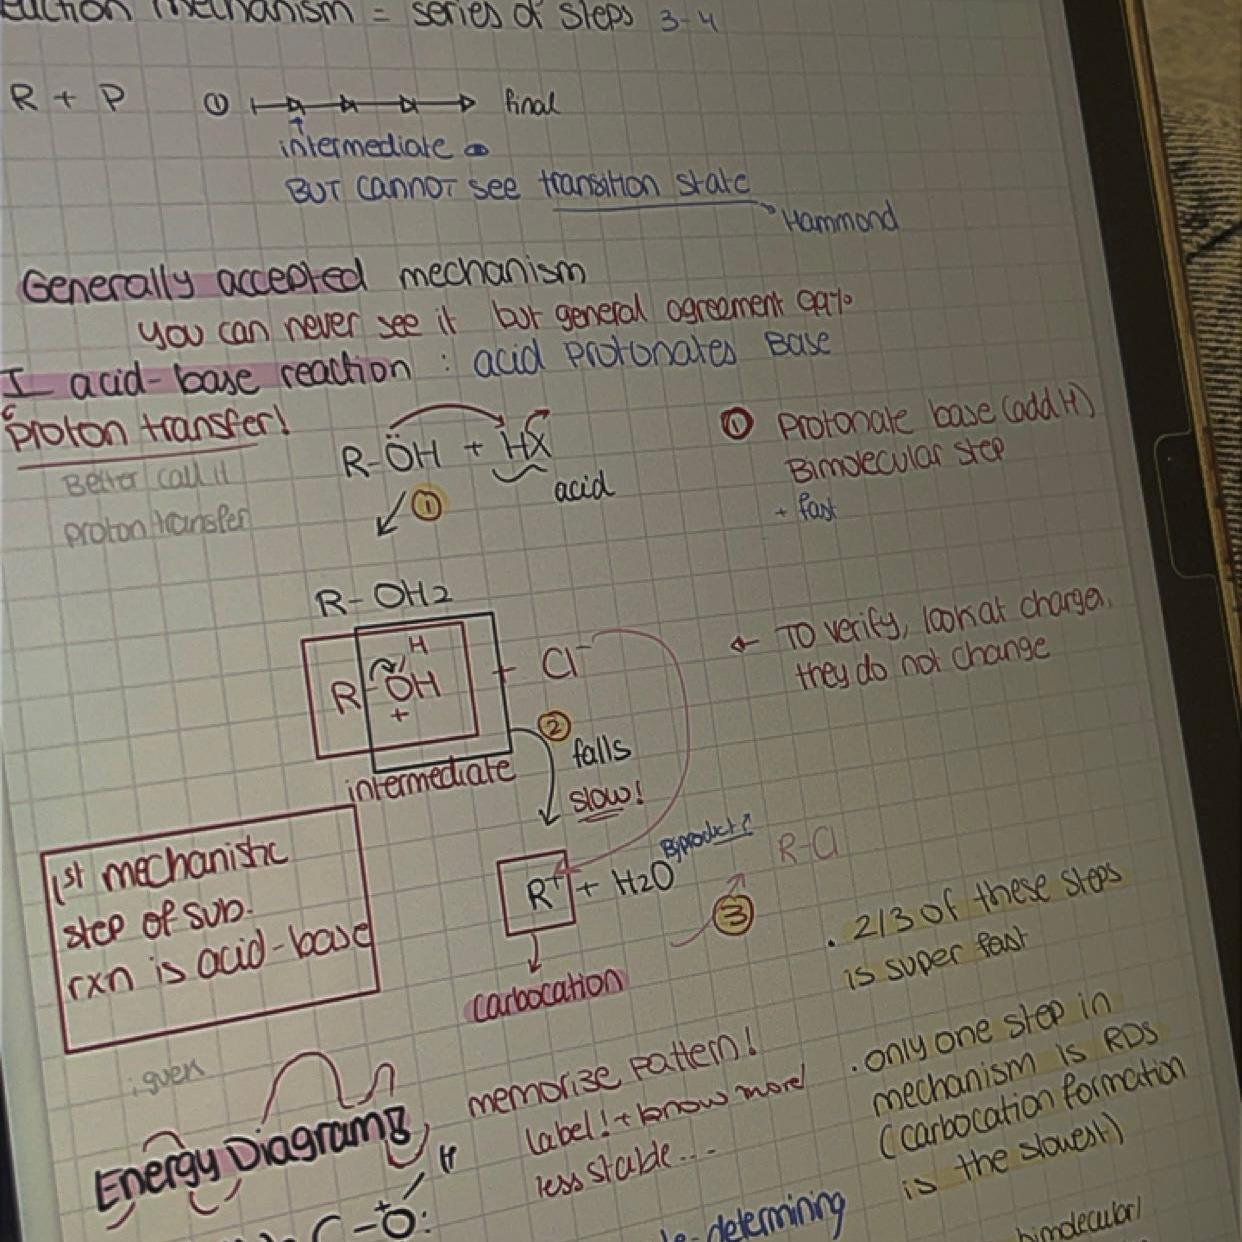 mechanism = series of steps 3-4
R + P ① final
intermediate
BUT CANNOT see transition state
Hammond
Generally accepted mechanism
you can never see it but general agreement 99%
I acid-base reaction : acid protonates Base
proton transfer!
Better call it
proton transfer
R-ÖH + HX
acid
①
① Protonate base (add H)
Bimolecular step
+ fast
R-OH2
H
R-OH + Cl⁻
+
intermediate
② falls
slow!
← To verify, look at charges,
they do not change
1st mechanistic
step of sub.
rxn is acid-base
R⁺ + H2O Byproduct
③ R-Cl
carbocation
. 2/3 of these steps
is super fast
. only one step in
mechanism is RDS
(carbocation formation
is the slowest)
Energy Diagram
memorize pattern!
label! + know more!
less stable...
H
C-O:
+
-determining
bimolecular/